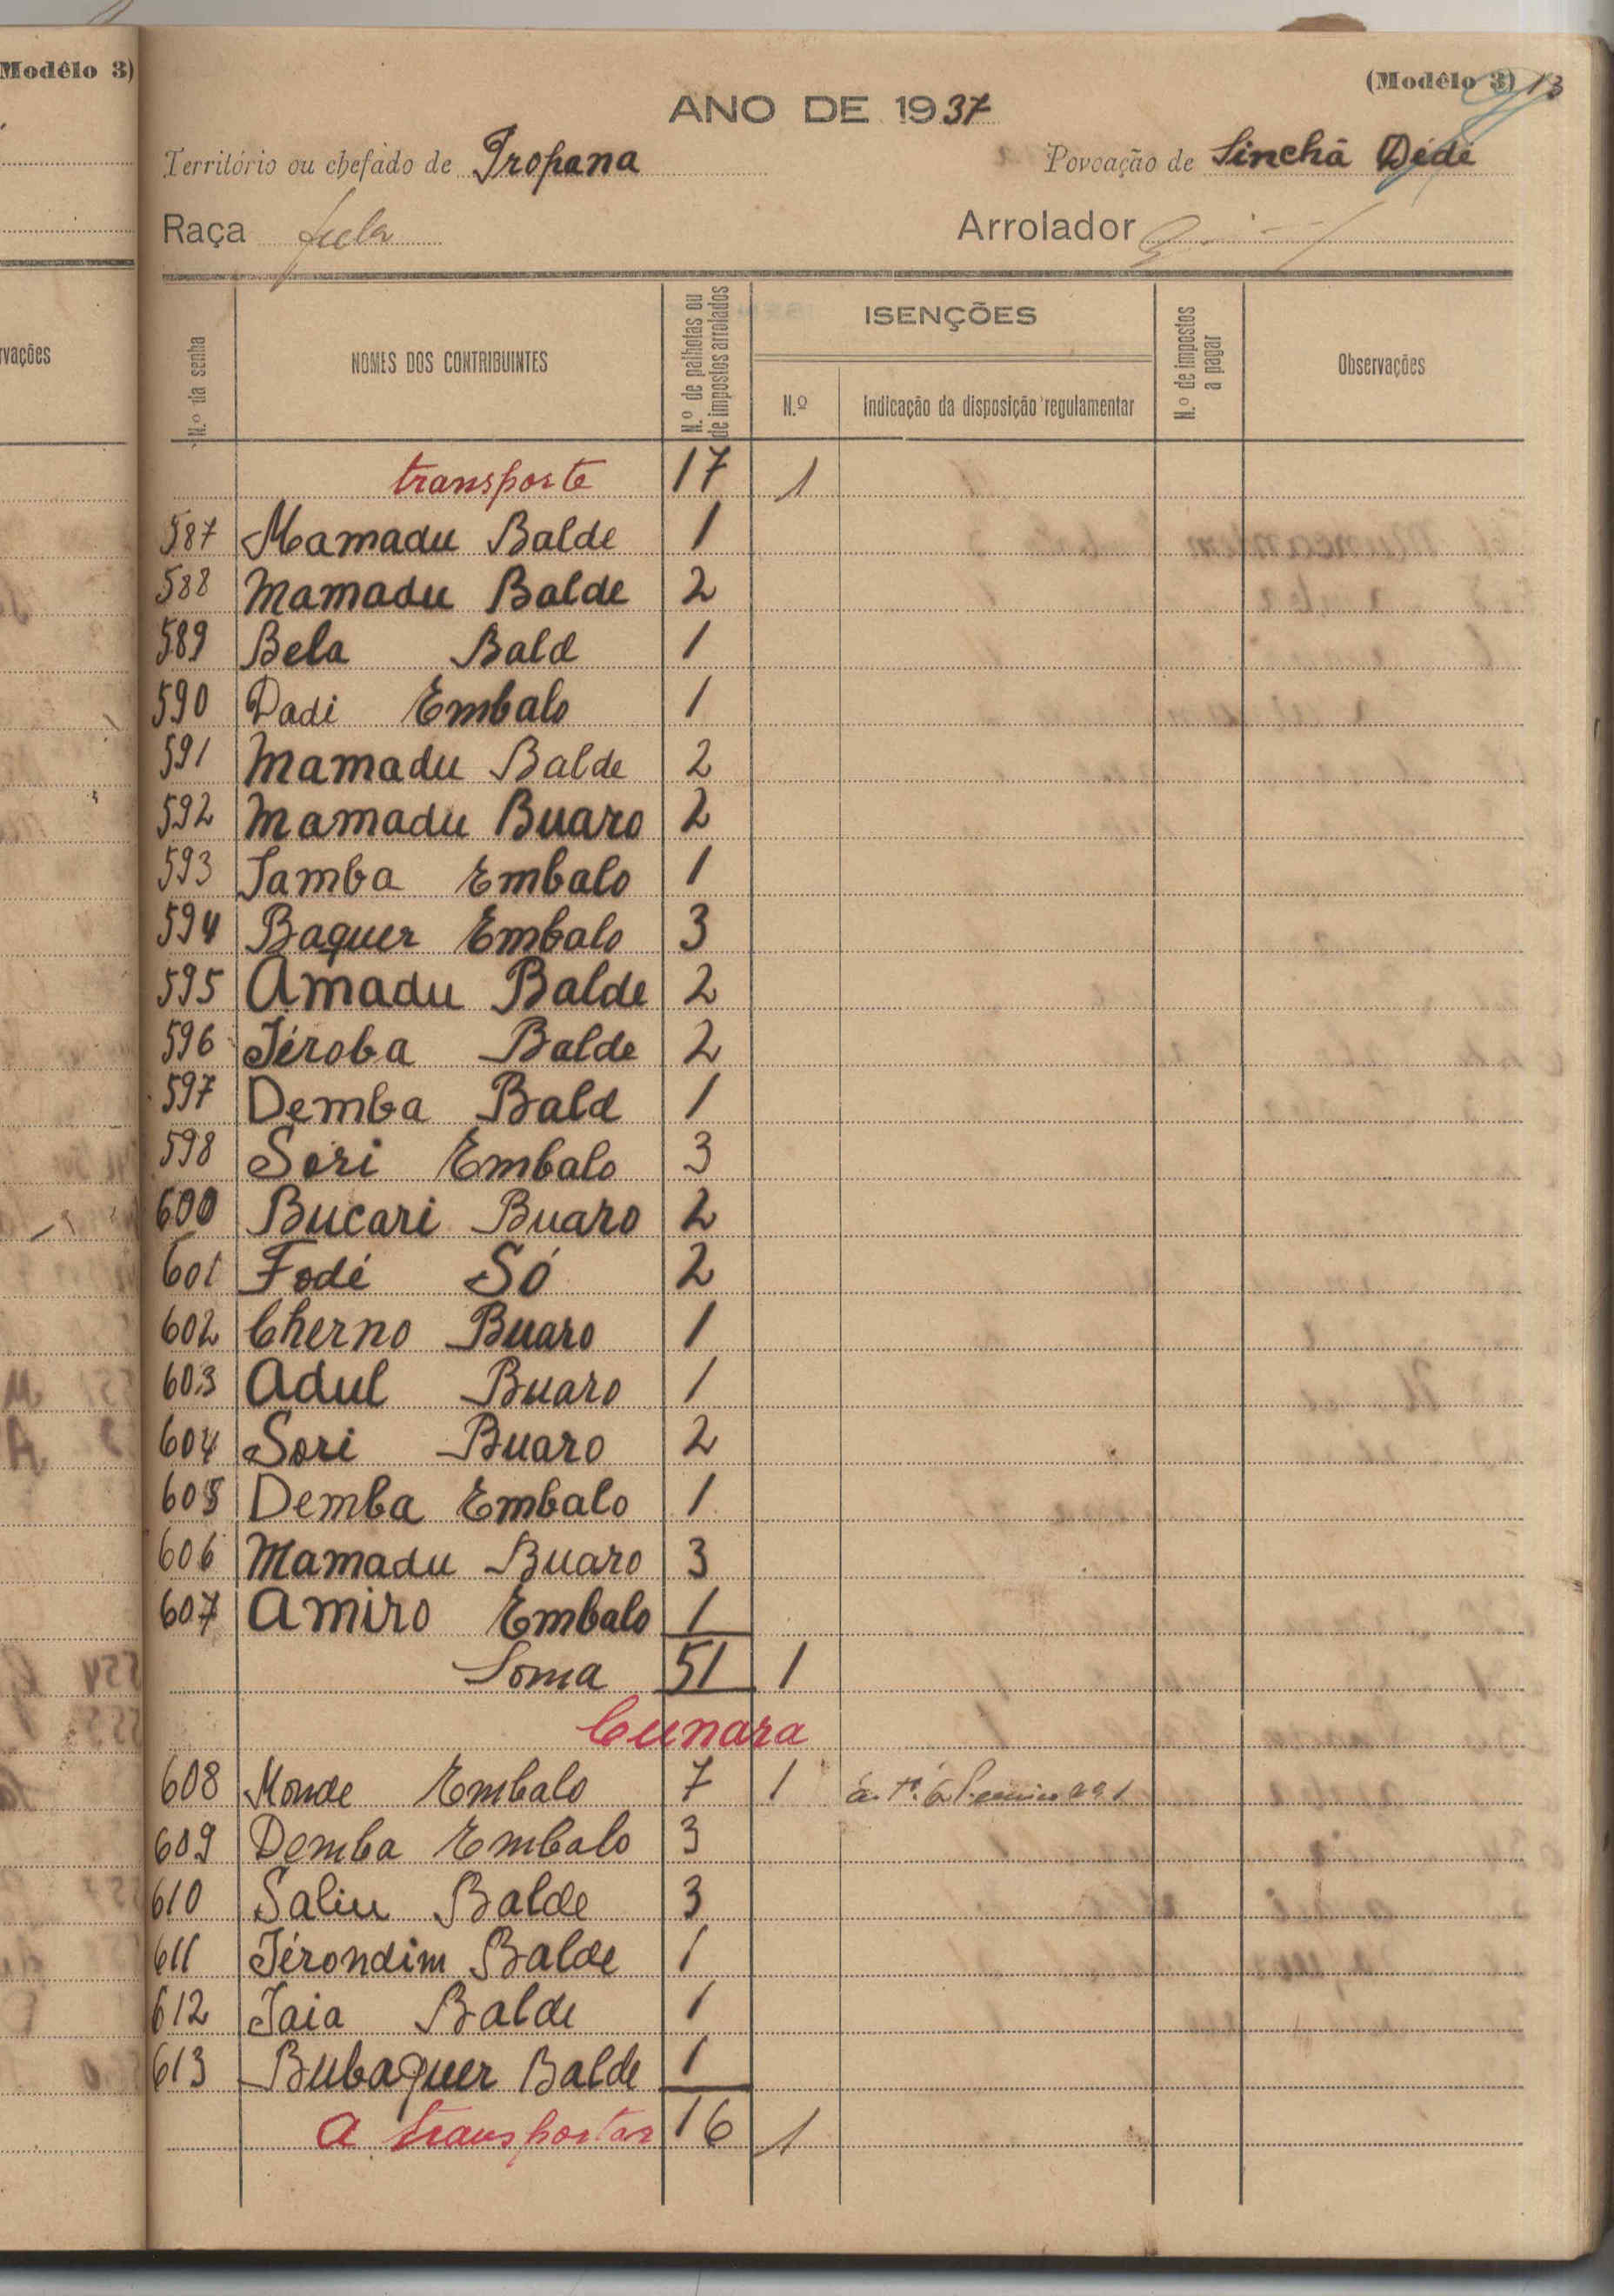 Modêlo 3)
(Modêlo 3) 13
ANO DE 1937
Território ou chefado de Propana Povoação de Sinchã Dédé
Raça fula Arrolador
N.º da senha NOMES DOS CONTRIBUINTES N.º de palhotas ou de impostos arrolados ISENÇÕES N.º de impostos a pagar Observações
rvações
N.º Indicação da disposição regulamentar
transporte 17 1
587 Mamadu Balde 1
588 Mamadu Balde 2
589 Bela Bald 1
590 Dadi Embalo 1
591 Mamadu Balde 2
592 Mamadu Buaro 2
593 Samba Embalo 1
594 Baquer Embalo 3
595 Amadu Balde 2
596 Téroba Balde 2
597 Demba Bald 1
598 Sori Embalo 3
600 Bucari Buaro 2
601 Fodé Só 2
602 Cherno Buaro 1
603 Adul Buaro 1
604 Sori Buaro 2
605 Demba Embalo 1
606 Mamadu Buaro 3
607 Amiro Embalo 1
Soma 51 1
Cunara
608 Monde Embalo 7 1
609 Demba Embalo 3
610 Saliu Balde 3
611 Térondim Balde 1
612 Iaia Balde 1
613 Bubaquer Balde 1
a transportar 16 1